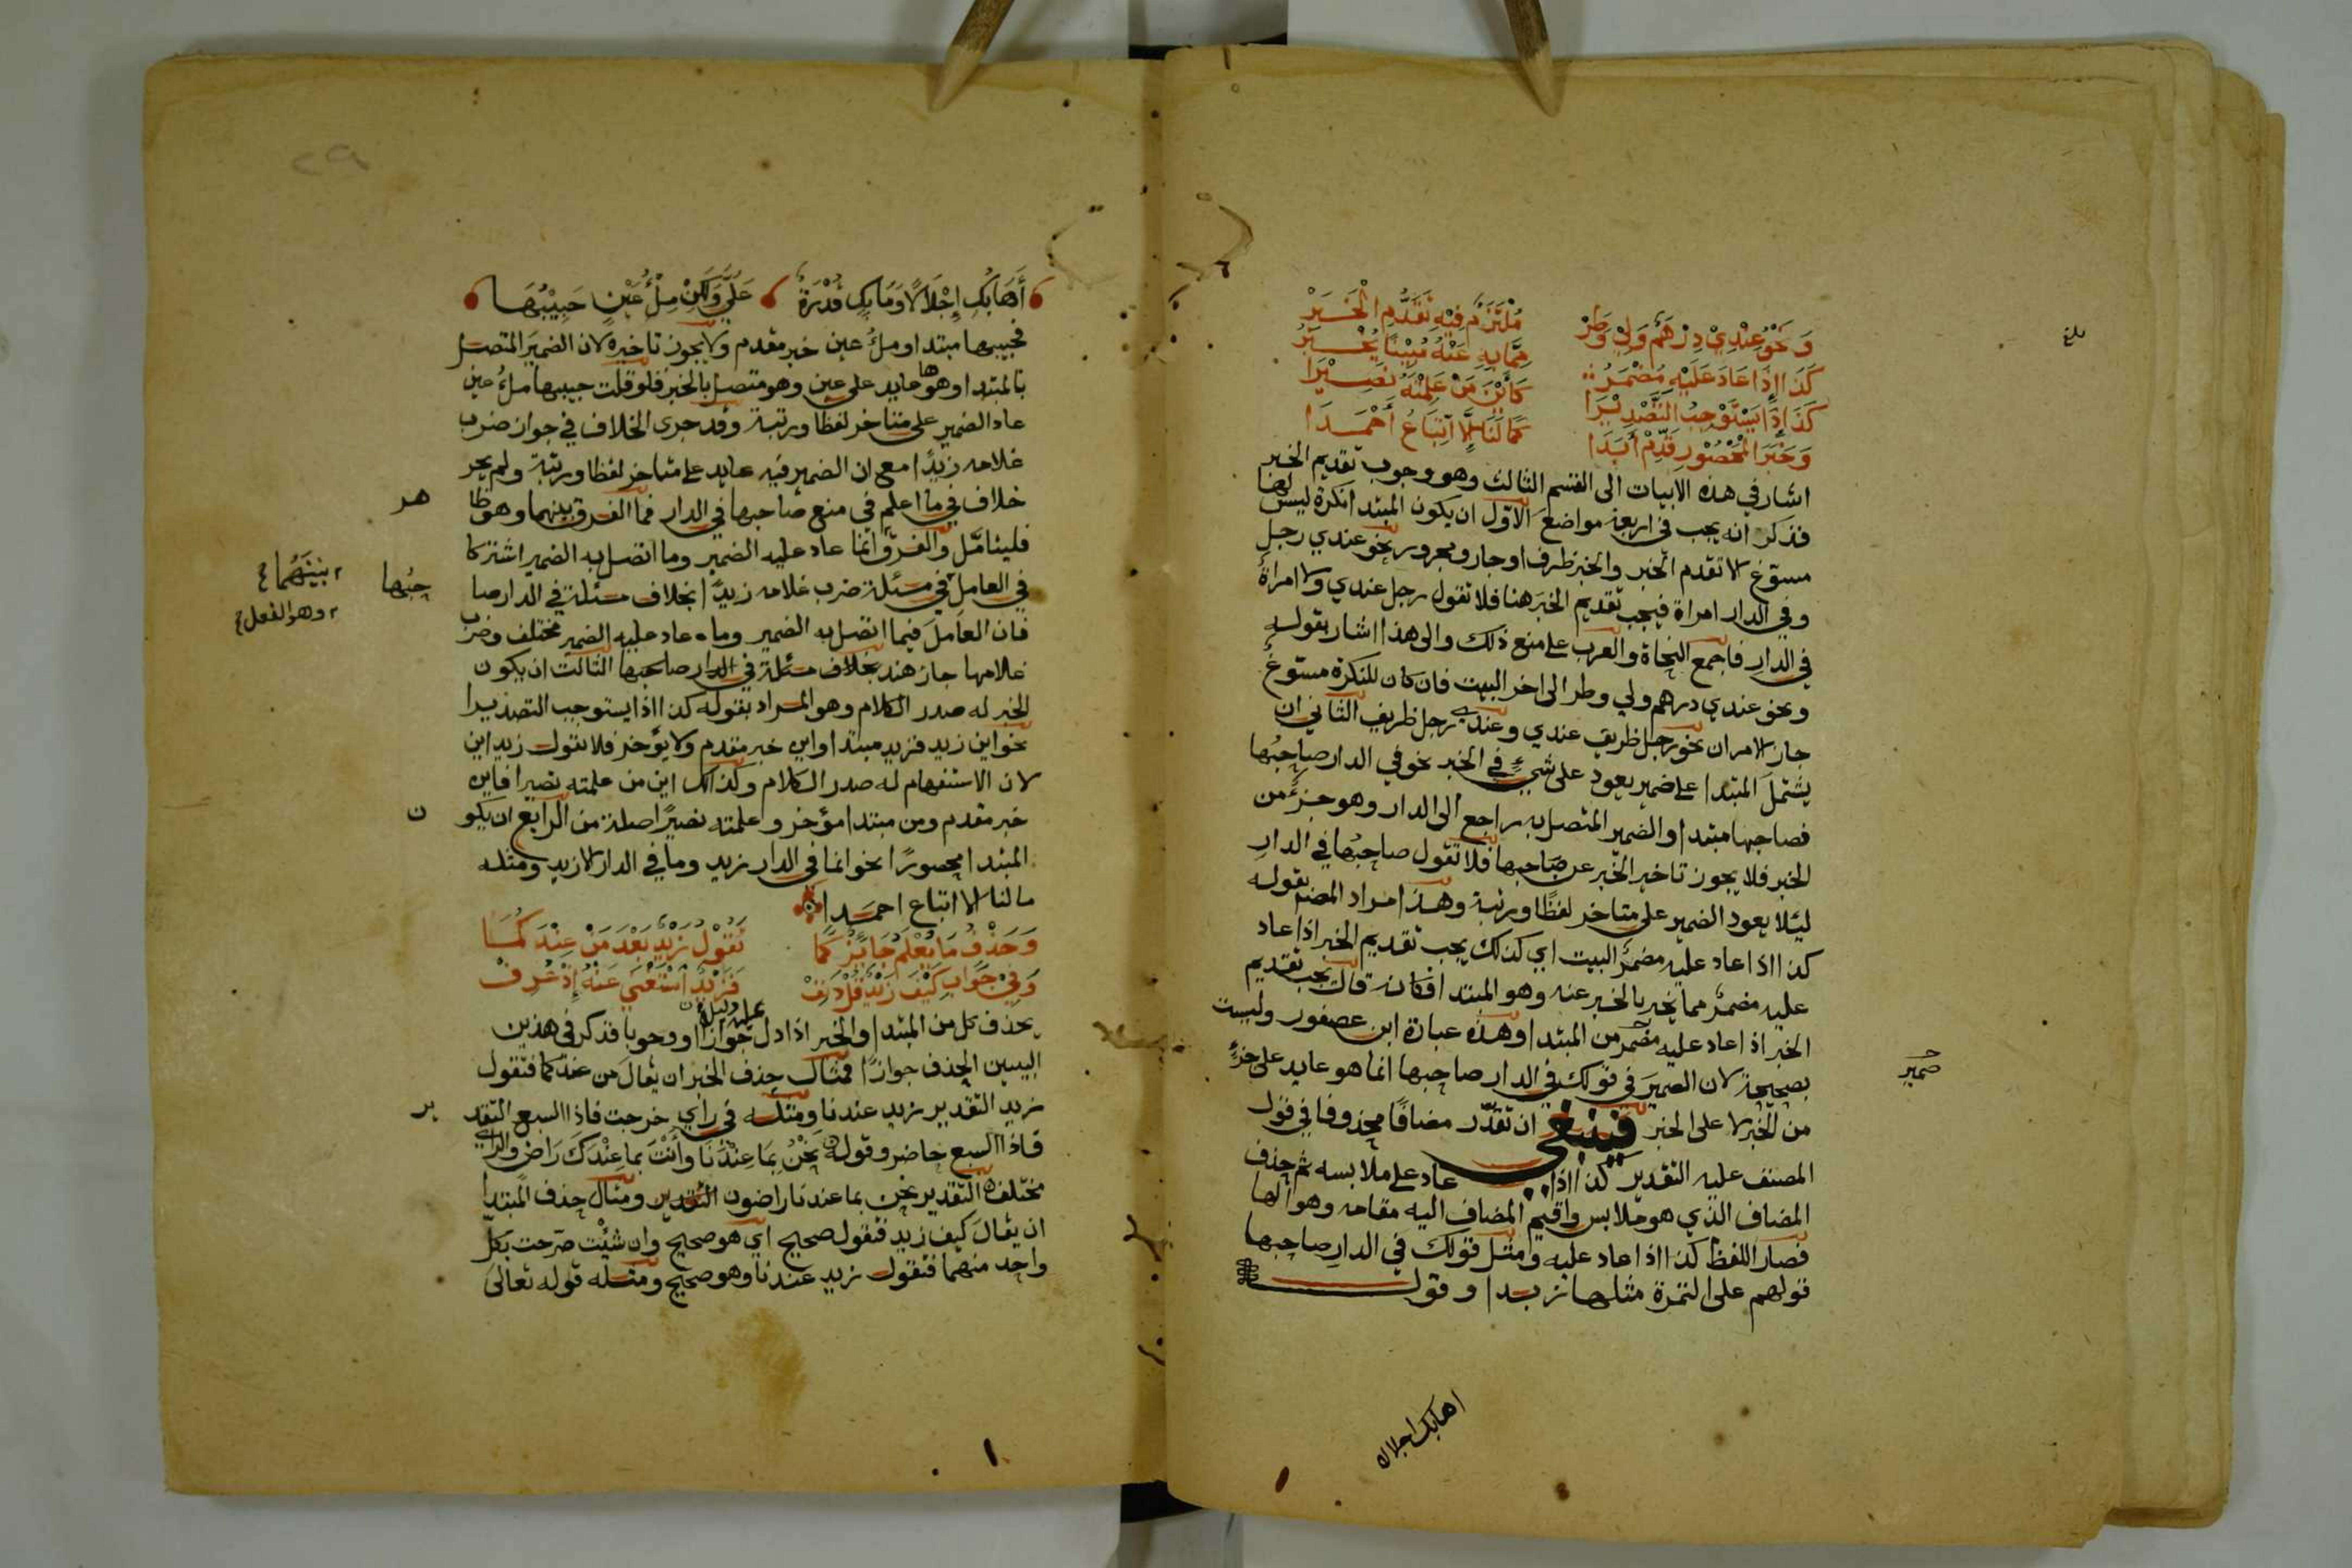 وَنَحْوُ عِنْدِيْ دِرْهَمٌ وَلِيْ وَطَرْ مُلْتَزَمٌ فِيْهِ تَقَدُّمُ الْخَبَرْ
كَذَا إِذَا عَادَ عَلَيْهِ مُضْمَرُ مِمَّا بِهِ عَنْهُ مُبِيْنًا يُخْبَرُ
كَذَا إِذَا يَسْتَوْجِبُ التَّصْدِيْرَا كَأَيْنَ مَنْ عَلِمْتَهُ نَصِيْرَا
وَخَبَرَ الْمَحْصُوْرِ قَدِّمْ أَبَدَا كَمَا لَنَا إِلَّا اتِّبَاعُ أَحْمَدَا
اشار في هذه الابيات الى القسم الثالث وهو وجوب تقديم الخبر
فذكر انه يجب في اربعة مواضع الاول ان يكون المبتدا نكرة ليس لها
مسوّغ الا تقدم الخبر والخبر ظرف او جار ومجرور نحو عندي رجل
وفي الدار امراة فيجب تقديم الخبر هنا فلا تقول رجل عندي ولا امراة
في الدار فاجمع النحاة والعرب على منع ذلك والى هذا اشار بقوله
ونحو عندي درهم ولي وطر الى اخر البيت فان كان للنكرة مسوّغ
جاز الامران نحو رجل ظريف عندي وعندي رجل ظريف الثاني ان
يشتمل المبتدا على ضمير يعود على شيءٍ في الخبر نحو في الدار صاحبُها
فصاحبها مبتدا والضمير المتصل به راجع الى الدار وهو جزءٌ من
الخبر فلا يجوز تاخير الخبر عن صاحبها فلا تقول صاحبُها في الدارِ
ليلا يعود الضمير على متاخر لفظًا ورتبة وهذا مراد المصنف بقوله
كذا اذا عاد عليه مضمرُ البيت اي كذلك يجب تقديم الخبر اذا عاد
عليه مضمرٌ مما يخبر بالخبر عنه وهو المبتدا فكانه قال يجب تقديم
الخبر اذا عاد عليه مضمر من المبتدا وهذه عبارة ابن عصفور وليست
بصحيحة لان الضميرَ في قولك في الدار صاحبها انما هو عايد على جزءٍ
من الخبر لا على الخبر فينبغي ان تقدّر مضافًا محذوفا في قول
المصنف عليه التقدير كذا اذا عاد على ملابسه ثم حذف
المضاف الذي هو ملابس واقيم المضاف اليه مقامه وهو الها
فصار اللفظ كذا اذا عاد عليه ومثل قولك في الدارِ صاحبها
قولهم على التمرة مثلها زبدا وقول
بلغ
ضمير
اهابك اجلالا
٢٩
أَهَابُكِ إِجْلَالًا وَمَا بِكِ قُدْرَةٌ عَلَيَّ وَلَكِنْ مِلْءُ عَيْنٍ حَبِيْبُهَا
فحبيبها مبتدا وملءُ عين خبر مقدم ولا يجوز تاخيره لان الضميرَ المتصل
بالمبتدا وهو ها عايد على عين وهو متصل بالخبر فلو قلت حبيبها ملءُ عين
عاد الضمير على متاخر لفظا ورتبة وقد جرى الخلاف في جواز ضرب
غلامه زيدًا مع ان الضمير فيه عايد على متاخر لفظا ورتبة ولم يجر
خلاف في ما اعلم في منع صاحبها في الدار فما الفرق بينهما وهو ظا
هر
فليتامّل والفرق انما عاد عليه الضمير وما اتصل به الضمير اشتركا
في العامل في مسئلة ضرب غلامه زيدًا بخلاف مسئلة في الدار صا
حبُها
فان العاملَ فيما اتصل به الضمير وما عاد عليه الضمير مختلف وضرب
غلامها جاز هند بخلاف مسئلة في الدار صاحبها الثالث ان يكون
الخبر له صدر الكلام وهو المراد بقوله كذا اذا يستوجب التصديرا
نحو اين زيد فزيد مبتدا واين خبر مقدم ولا يؤخر فلا تقول زيد اين
لان الاستفهام له صدر الكلام وكذلك اين من علمته نصيرا فاين
خبر مقدم ومن مبتدا مؤخر وعلمته نصيرًا صلة من الرابع ان يكو
ن
المبتدا محصورًا نحو انما في الدار زيد وما في الدار الا زيد ومثله
ما لنا الا اتباع احمدا
وَحَذْفُ مَا يُعْلَمُ جَائِزٌ كَمَا تَقُوْلُ زَيْدٌ بَعْدَ مَنْ عِنْدَ كُمَا
وَفِيْ جَوَابِ كَيْفَ زَيْدٌ قُلْ دَنِفْ فَزَيْدٌ اسْتُغْنِيَ عَنْهُ إِذْ عُرِفْ
يحذف كل من المبتدا والخبر اذا دل عليه دليل جوازا او وجوبا فذكر في هذين
البيتين الحذف جوازًا فمثال حذف الخبر ان يقالَ من عندكما فتقول
زيد التقدير زيد عندنا ومثله في راي خرجت فاذا السبع التقد
ير
فاذا السبع حاضر وقوله نَحْنُ بِمَا عِنْدَنَا وَأَنْتَ بِمَا عِنْدَكَ رَاضٍ والراي
مختلف التقدير نحن بما عندنا راضون ومثال حذف المبتدا
ان يقالَ كيف زيد فتقول صحيح اي هو صحيح وان شئت صرّحت بكلّ
واحد منهما فتقول زيد عندنا وهو صحيح ومثله قوله تعالى
بينَهُما
وهو الفعل